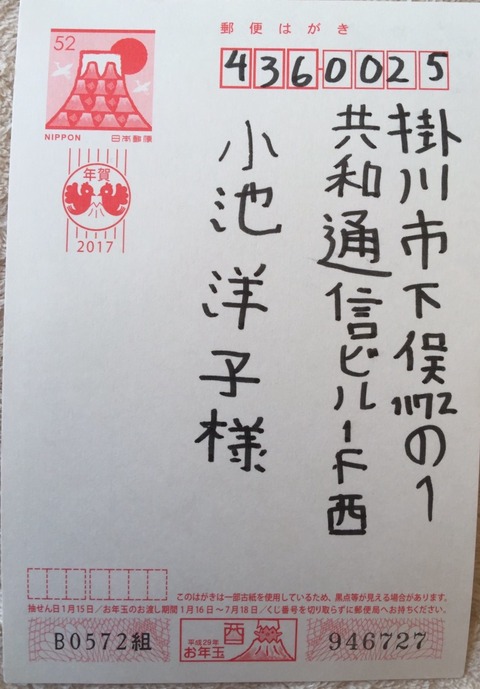 郵便はがき
52
NIPPON
日本郵便
年賀
2017
4360025
掛川市下俣1172の1
共和通信ビル1F西
小池洋子様
このはがきは一部古紙を使用しているため、黒点等が見える場合があります。
抽せん日1月15日/お年玉のお渡し期間1月16日〜7月18日/くじ番号を切り取らずに郵便局へお持ちください。
B0572組
平成29年
お年玉
酉
946727